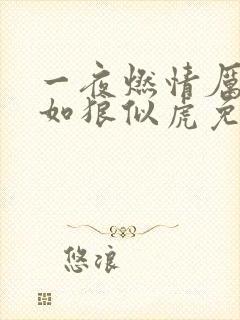 一夜燃情厉
如狼似虎免
悠浪